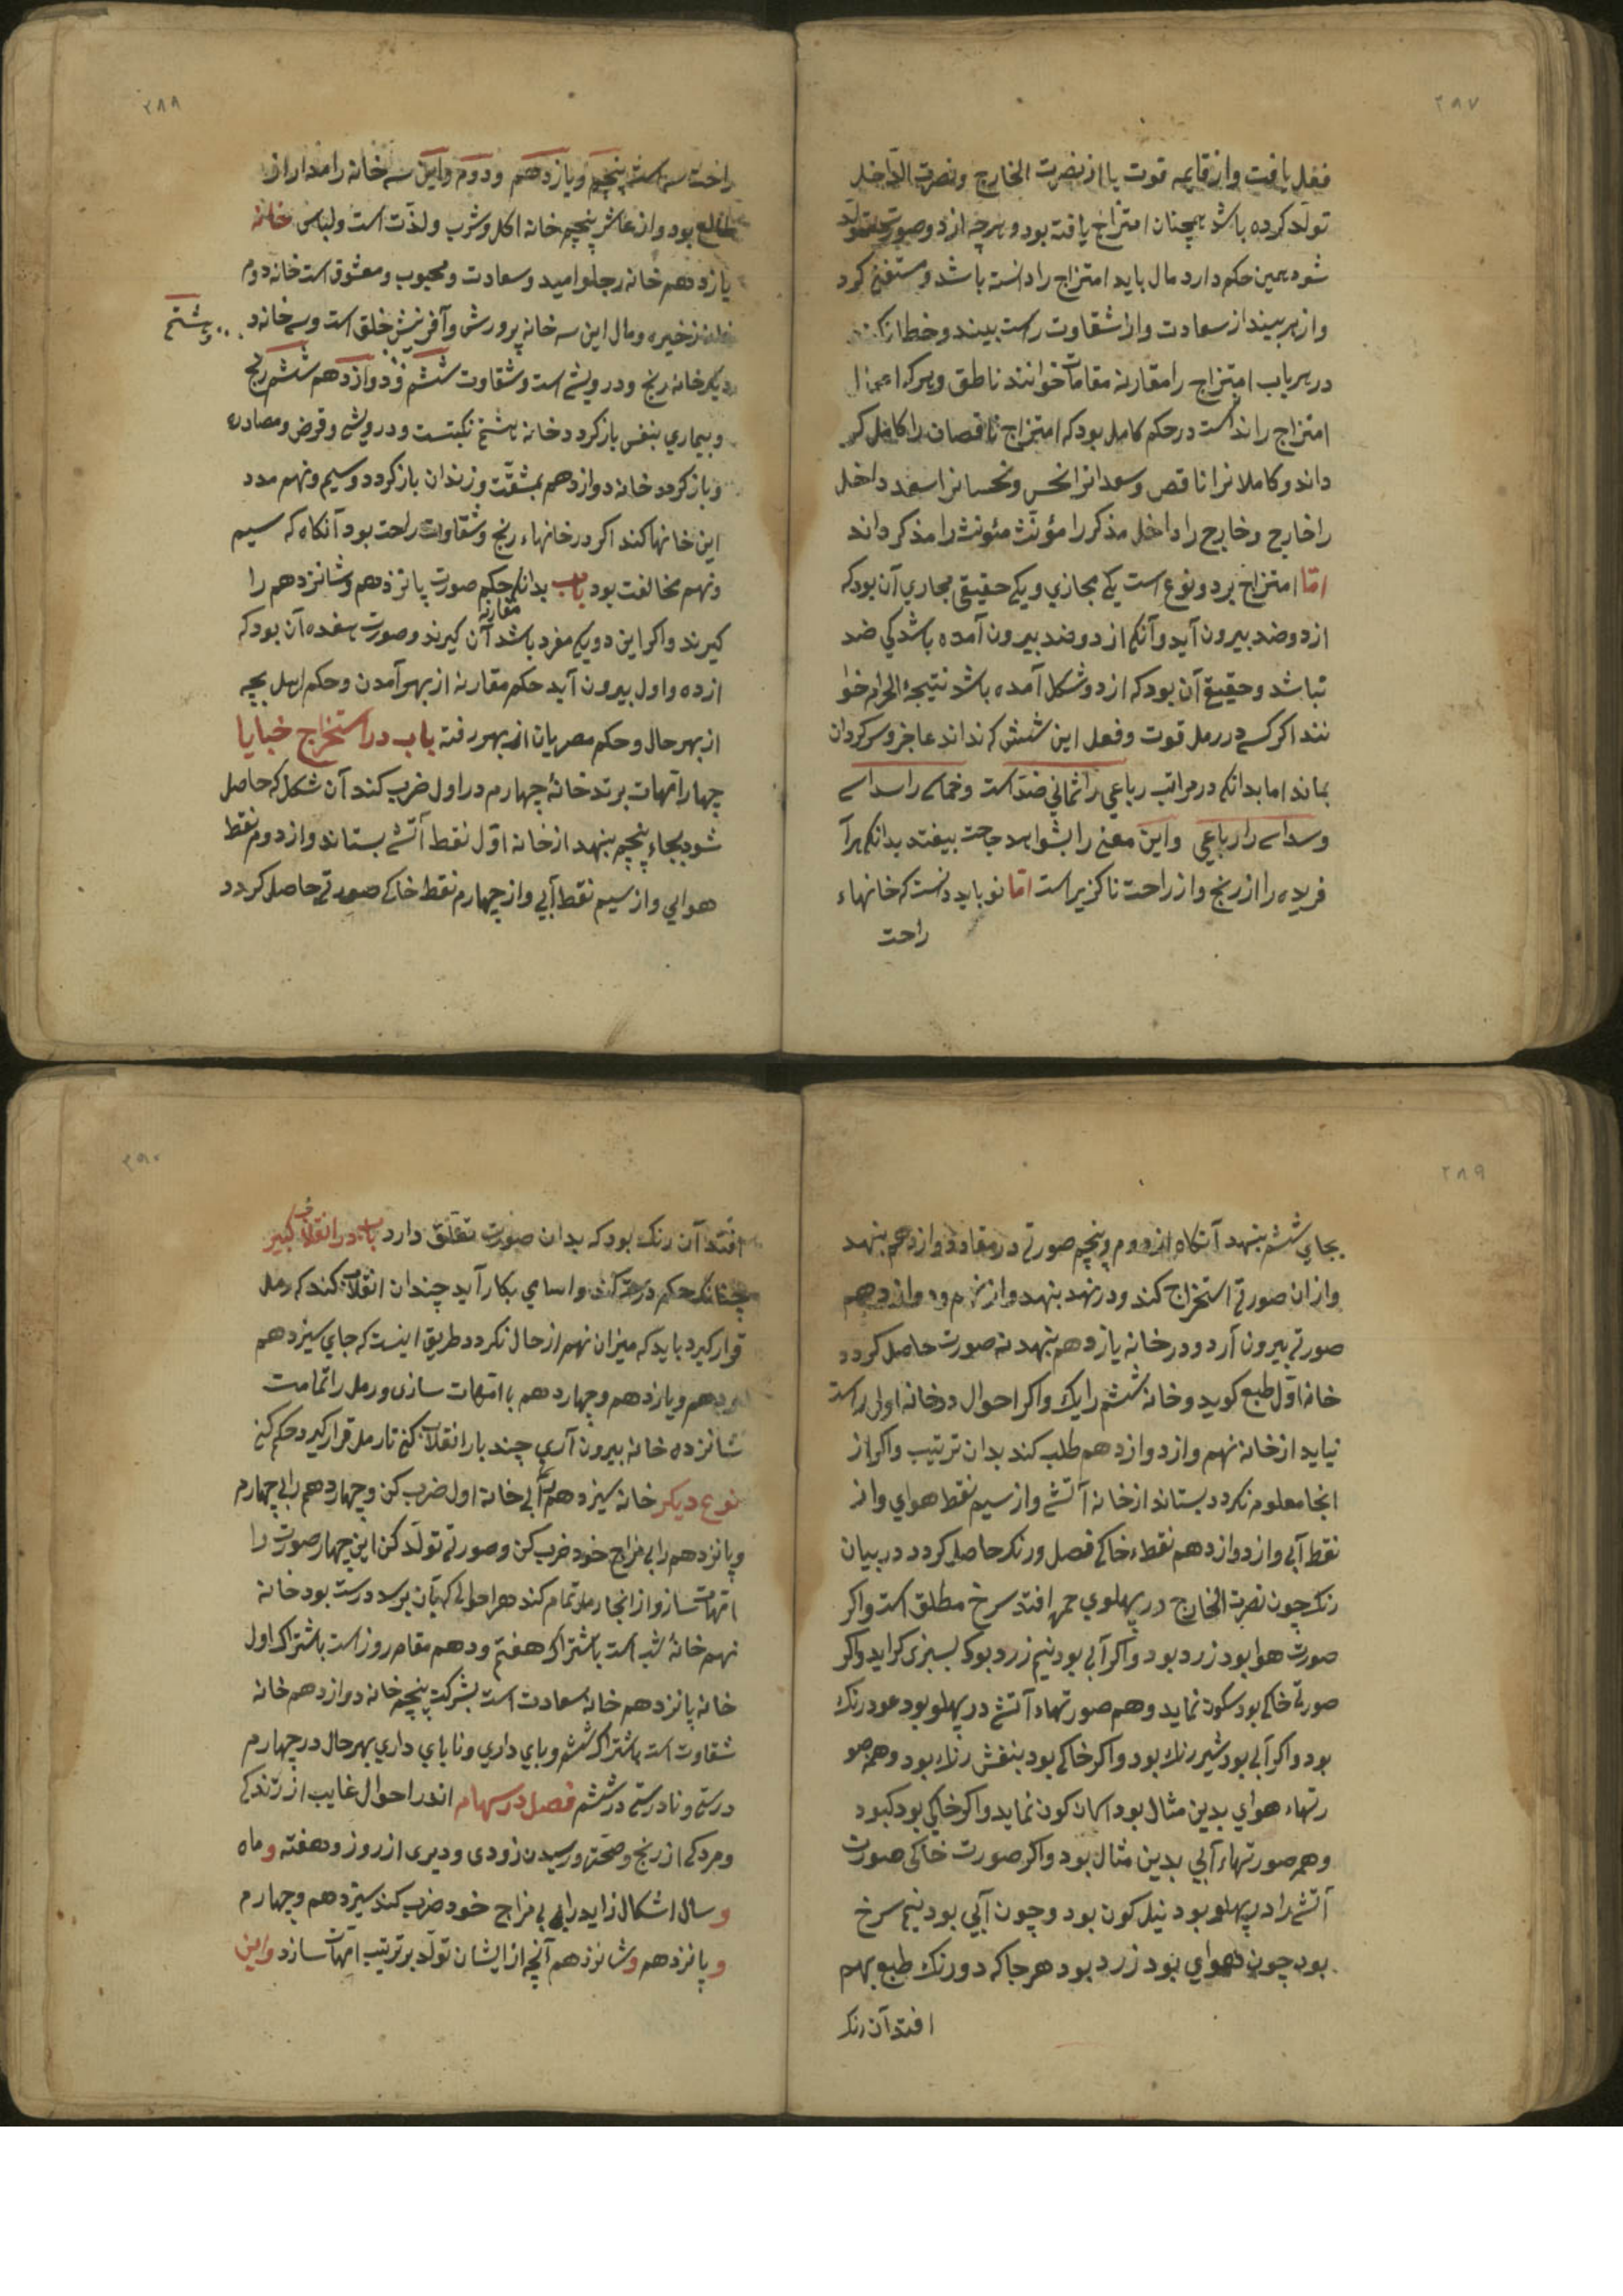 ۲۸۷
فعل یافت و از قایمه قوت یا از نصرت الخارج و نصرت الداخل
تولد کرده باشد همچنان امتزاج یافته بود و هرچه از دو صورت متولد
شود همین حکم دارد مال باید امتزاج را دانسته باشد و مستغنی کرد
و از هر بیند از سعادت و از شقاوت راست بیند و خطا نکند
در هر باب امتزاج را مقارنه مقامات خوانند ناطق و هرکه اعمال
امتزاج را نداند است در حکم کامل بود که امتزاج ناقصان را کامل کر
داند و کاملانرا ناقص و سعدانرا نحس و نحسانرا سعد داخل
را خارج و خارج را داخل مذکر را مؤنث مئونث را مذکر داند
اما امتزاج بر دو نوع است یکی مجازی و یکی حقیقی مجازی آن بود که
از دو ضد بیرون آید و آنکه از دو ضد بیرون آمده باشد کی ضد
نباشد و حقیقی آن بود که از دو شکل آمده باشد نتیجهٔ الحرام خوا
نند اکر کسی در رمل قوت و فعل این شش که نداند عاجز و سرکردان
بماند اما بدانکه در مراتب رباعی را ثمانی ضد است و خماسی را سداسی
و سداسی را رباعی و این معنی را بشواهد حاجت بیفتد بدانکه هر آ
فریده را از رنج و از راحت ناکزیر است اما نو باید دانست که خانهاء
راحت
۲۸۸
راحت سه است پنجم و یازدهم و دوم و این سه خانه را مدار از
طالع بود و از عاشر پنجم خانه اکل و شرب و لذت است و لباس خانه
یازدهم خانه رجا و امید و سعادت و محبوب و معشوق است خانه دوم
خانه ذخیره و مال این سه خانه پرورش و آفرینش خلق است و سه خانه د
و هشتم
دیکر خانه رنج و درویشی است و شقاوت ششم و دوازدهم ششم رنج
و بیماری بنفس بازکردد خانه هشتم نکبتست و درویشی و قرض و مصادره
و بازکردد خانه دوازدهم بمشقت و زندان بازکردد و سیم و نهم مدد
این خانها کند اکر در خانهاء رنج و شقاوت راحت بود آنکاه که سیم
و نهم مخالفت بود باب بدانکه حکم صورت پانزدهم و شانزدهم را
مقارنه
کیرند و اکر این دو یکی مفرد باشد آن کیرند و صورت هفده آن بود که
از ده و اول بیرون آید حکم مقارنه از بهر آمدن و حکم اهل بچه
از بهر حال و حکم مصریان از بهر رفته باب در استخراج خبایا
چهار امهات برتد خانهٔ چهارم در اول ضرب کند آن شکل که حاصل
شود بجاء پنجم بنهد از خانه اول نقط آتشی بستاند و از دوم نقط
هوایی و از سیم نقط آبی و از چهارم نقط خاکی صورتی حاصل کردد
۲۸۹
بجای ششم بنهد آنکاه از دوم و پنجم صورتی در مقام دوازدهم بنهد
و از ان صورتی استخراج کند و در نهد بنهد و از نهم و دوازدهم
صورتی بیرون آرد و در خانه یازدهم بنهد نه صورت حاصل کردد
خانه اول طبع کوید و خانه ششم رایک و اکر احوال در خانه اولی راست
نیاید از خانه نهم و از دوازدهم طلب کند بدان ترتیب و اکر از
انجا معلوم نکردد بستاند از خانه آتشی و از سیم نقط هوایی و از
نقط آبی و از دوازدهم نقطهء خاکی فصل و رنک حاصل کردد در بیان
رنک چون نصرت الخارج در پهلوی حمره افتد سرخ مطلق است و اکر
صورت هوا بود زرد بود و اکر آبی بود نیم زرد بود که بسبزی کراید و اکر
صورتی خاکی بود سکون نماید و هم صورتهاء آتشی در پهلو بود عود رنک
بود و اکر آبی بود شیر رنک بود و اکر خاکی بود بنفش رنک بود و همه صو
رتهاء هوای بدین مثال بود اسمان کون نماید و اکر خاکی بود کبود
و همه صورتهاء آبی بدین مثال بود و اکر صورت خاکی صورت
آتشی را در پهلو بود نیل کون بود و چون آبی بود نیم سرخ
بود چون هوای بود زرد بود هر جا که دو رنک طبع بهم
افتد آن رنک
۲۹۰
افتد آن رنک بود که بدان صورت تعلق دارد باب در انقلاب کبیر
چنانک حکم درست کند و اسامی بکار آید چندان انقلاب کند که رمل
قرار کیرد باید که میزان نهم از حال نکردد طریق اینست که جای سیزدهم
و دهم و یازدهم و چهاردهم با امهات سازی و رمل را تمامت
شانزده خانه بیرون آری چند بار انقلاب کنی تا رمل قرار کیرد حکم کنی
نوع دیکر خانه سیزدهم را بی خانه اول ضرب کن و چهاردهم را بی چهارم
و پانزدهم را بی مزاج خود ضرب کن و صورتی تولد کن این چهار صورت را
امهات ساز و از انجا رمل تمام کند هر احوالی که بآن برسد درست بود خانه
نهم خانهٔ شب است باشتراک هفتم و دهم مقام روز است باشتراک اول
خانه پانزدهم خانه سعادت است بشرکت پنجم خانه دوازدهم خانه
شقاوت است باشتراک ششم و پای داری و ناپای داری بهر حال در چهارم
درستی و نادرستی در ششم فصل در سهام اندر احوال غایب از زندکی
و مردکی از رنج و صحت و رسیدن زودی و دیری از روز و هفته و ماه
و سال اشکال زاید را بی مزاج خود ضرب کند سیزدهم و چهارم
و پانزدهم و شانزدهم آنچه از ایشان تولد بر ترتیب امهات سازد و این